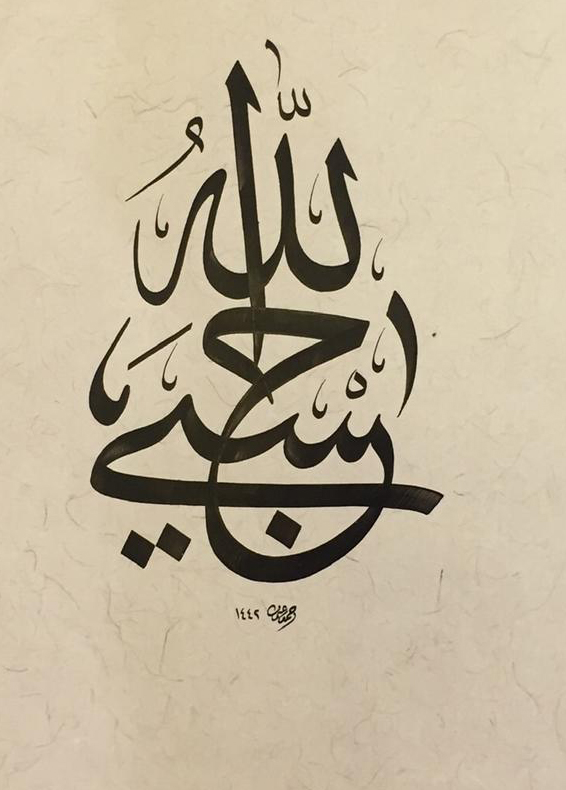 حَسْبِيَ اللّٰهُ
١٤٤٢